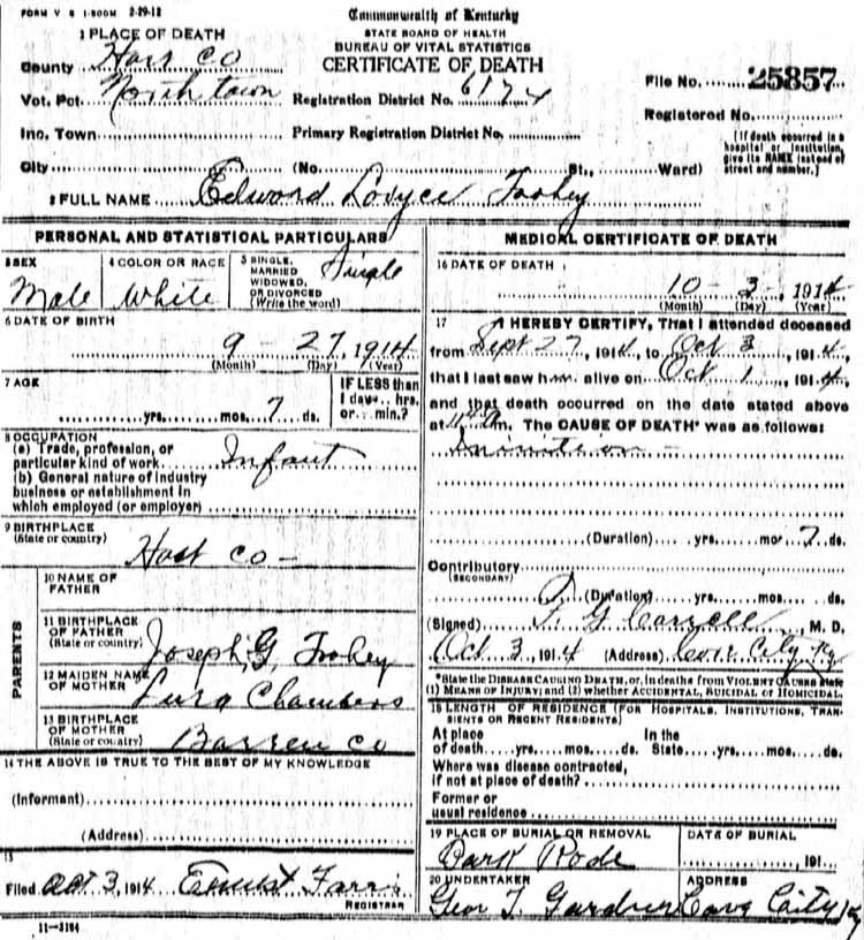 FORM V S 1-500M 2-29-12
Commonwealth of Kentucky
STATE BOARD OF HEALTH
BUREAU OF VITAL STATISTICS
CERTIFICATE OF DEATH
1 PLACE OF DEATH
County Hart Co
Vot. Pct. North town Registration District No. 6174
File No. 25857
Registered No.
Inc. Town Primary Registration District No.
(If death occurred in a
hospital or institution,
give its NAME instead of
street and number.)
City (No. St., Ward)
2 FULL NAME Edward Toohey
PERSONAL AND STATISTICAL PARTICULARS
3 SEX
Male
4 COLOR OR RACE
White
5 SINGLE,
MARRIED
WIDOWED,
OR DIVORCED
(Write the word)
Single
6 DATE OF BIRTH
9 - 27, 1914
(Month) (Day) (Year)
7 AGE
yrs. mos. 7 ds.
IF LESS than
1 day... hrs.
or... min.?
8 OCCUPATION
(a) Trade, profession, or
particular kind of work Infant
(b) General nature of industry
business or establishment in
which employed (or employer)
9 BIRTHPLACE
(State or country)
Hart Co -
PARENTS
10 NAME OF
FATHER
11 BIRTHPLACE
OF FATHER
(State or country)
Joseph G. Toohey
12 MAIDEN NAME
OF MOTHER
Lura Chambers
13 BIRTHPLACE
OF MOTHER
(State or country)
Barren Co
14 THE ABOVE IS TRUE TO THE BEST OF MY KNOWLEDGE
(Informant)
(Address)
15
Filed Oct 3, 1914 Ernest Farris
REGISTRAR
11-3184
MEDICAL CERTIFICATE OF DEATH
16 DATE OF DEATH
10 - 3, 1914
(Month) (Day) (Year)
17 I HEREBY CERTIFY, That I attended deceased
from Sept 27, 1914, to Oct 3, 1914,
that I last saw him alive on Oct 1, 1914,
and that death occurred on the date stated above
at m. The CAUSE OF DEATH* was as follows:
Inanition -
(Duration) yrs. mos. 7 ds.
Contributory
(SECONDARY)
(Duration) yrs. mos. ds.
(Signed) M. D.
Oct 3, 1914 (Address) Cave City Ky
*State the DISEASE CAUSING DEATH, or, in deaths from VIOLENT CAUSES state
(1) MEANS OF INJURY; and (2) whether ACCIDENTAL, SUICIDAL or HOMICIDAL.
18 LENGTH OF RESIDENCE (FOR HOSPITALS, INSTITUTIONS, TRAN-
SIENTS OR RECENT RESIDENTS)
At place In the
of death yrs. mos. ds. State yrs. mos. ds.
Where was disease contracted,
if not at place of death?
Former or
usual residence
19 PLACE OF BURIAL OR REMOVAL
DATE OF BURIAL
, 191
20 UNDERTAKER
Geor T. Gardner
ADDRESS
Cave City Ky